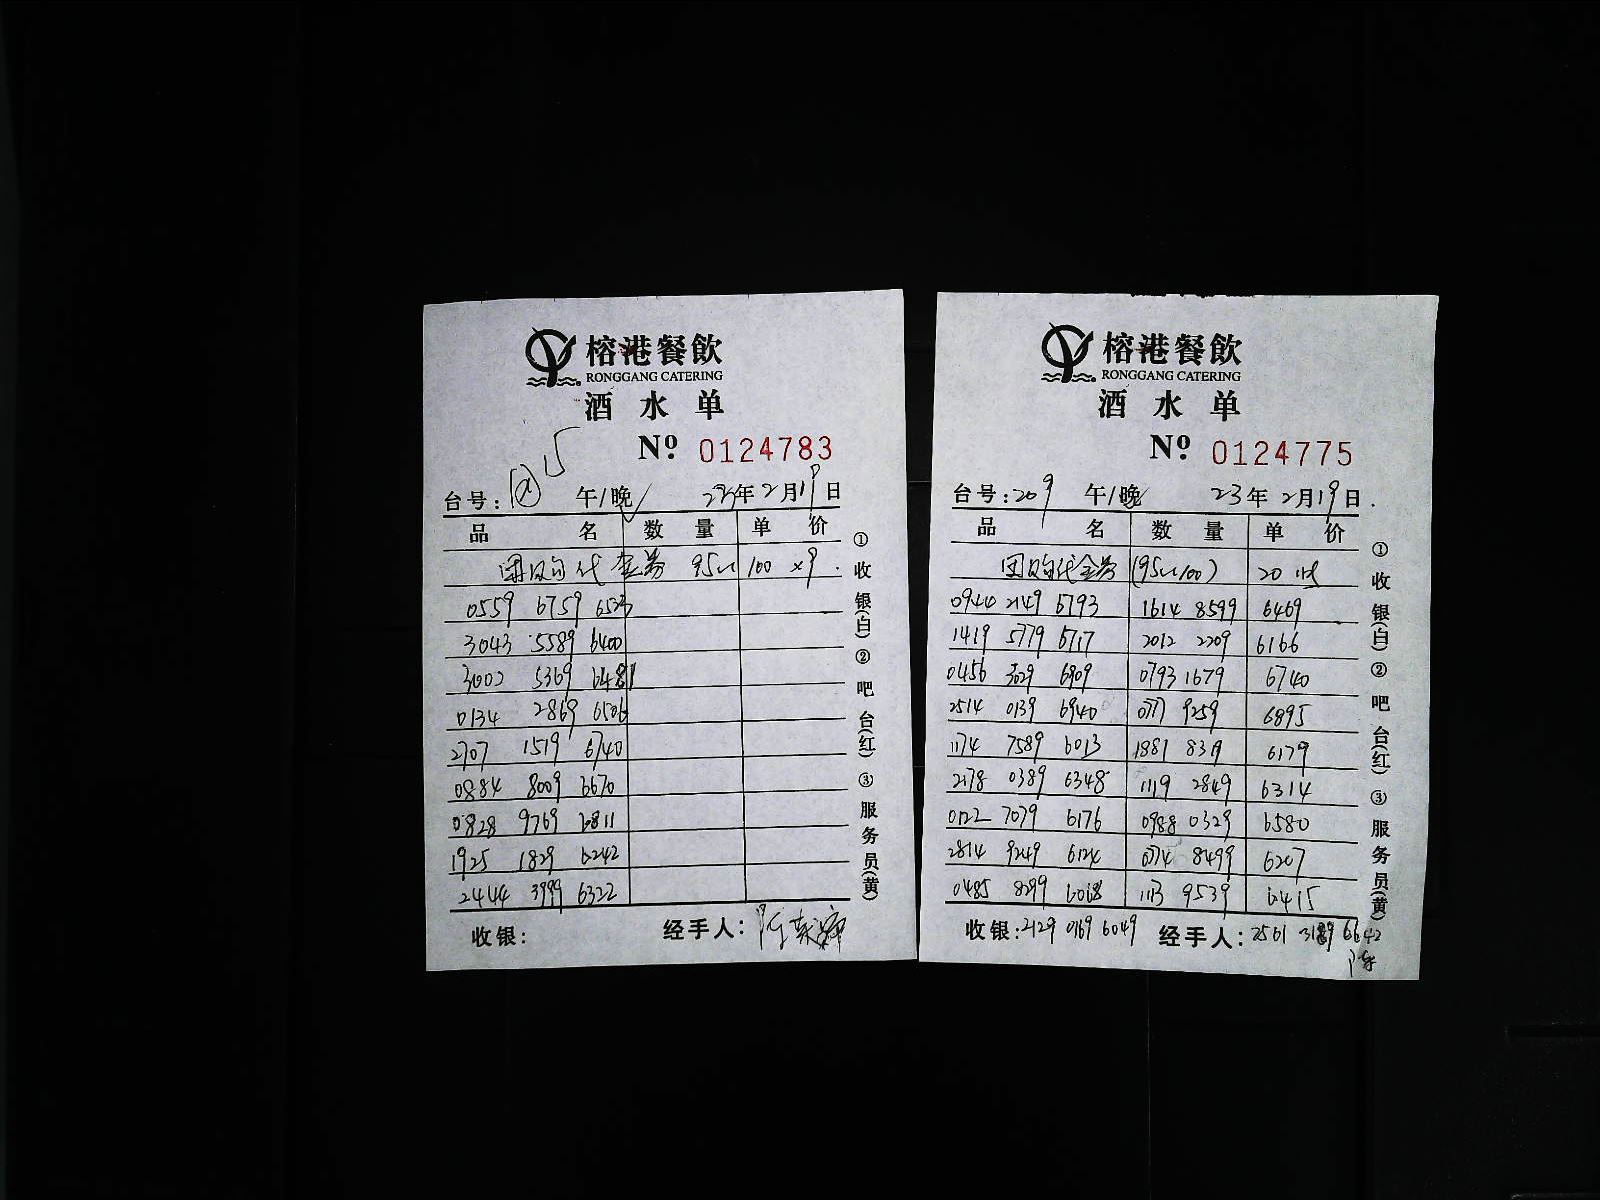 榕港餐飲
RONGGANG CATERING
酒水单
Nº 0124783
台号: 午/晚 23年2月19日
品名 数量 单价
团购代金券 95 100 ×9
0559 6759 6523
3043 5589 6400
3002 5369 6481
0134 2869 6506
2707 1519 6740
0884 8009 6670
0828 9769 6811
1925 1829 6242
2444 3999 6322
收银: 经手人:
①收银(白) ②吧台(红) ③服务员(黄)
榕港餐飲
RONGGANG CATERING
酒水单
Nº 0124775
台号:209 午/晚 23年2月19日
品名 数量 单价
团购代金券 (95 100) 20
0940 2149 6793 1614 8599 6469
1419 5779 6717 2012 2209 6166
0456 3629 6909 0793 1679 6740
2514 0139 6940 0777 9259 6895
1174 7589 6013 1881 8319 6179
2178 0389 6348 1119 2849 6314
0122 7079 6176 0988 0329 6580
2814 9249 6124 0774 8499 6207
0485 8299 6068 1113 9539 6415
收银:2129 0169 6049 经手人:2561 3189 6642
陈
①收银(白) ②吧台(红) ③服务员(黄)